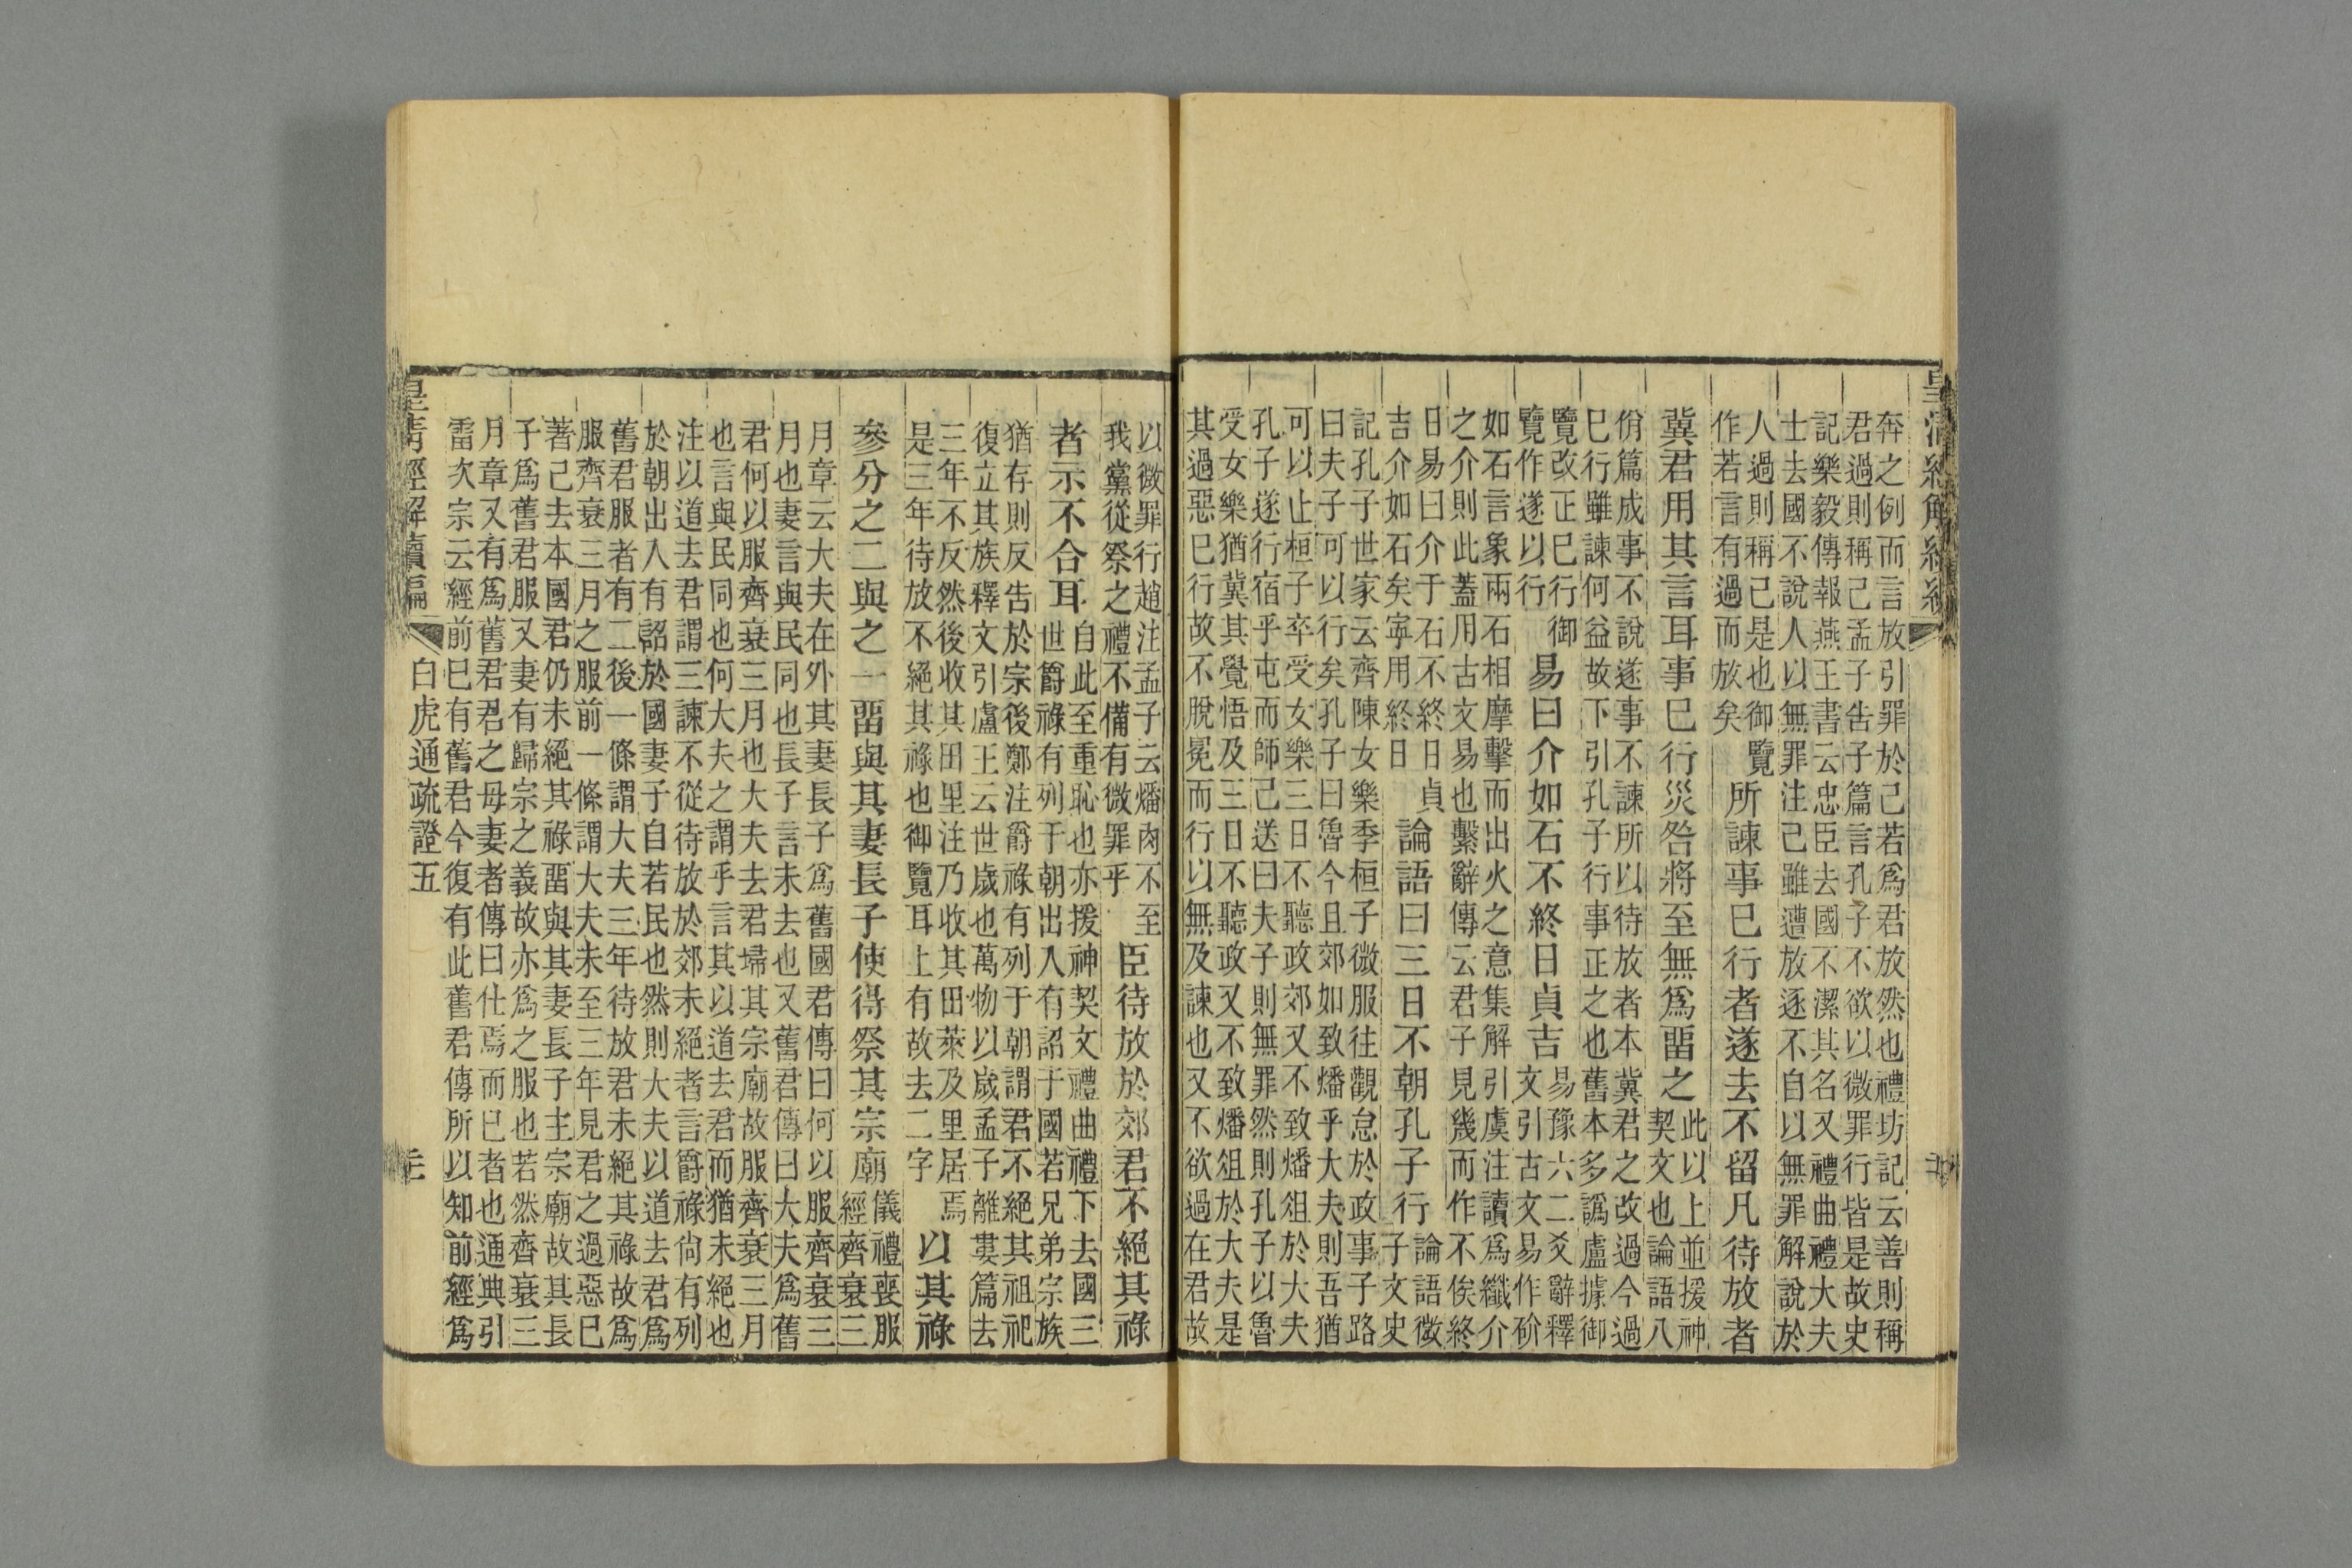 皇清經解續編
奔之例而言放引罪於己若爲君放然也禮坊記云善則稱
君過則稱己孟子告子篇言孔子不欲以微罪行皆是故史
記樂毅傳報燕王書云忠臣去國不潔其名又禮曲禮大夫
士去國不說人以無罪注己雖遭放逐不自以無罪解說於
人過則稱己是也御覽
作若言有過而放矣
所諫事已行者遂去不留凡待放者
冀君用其言耳事已行災咎將至無爲畱之
此以上並援神
契文也論語八
佾篇成事不說遂事不諫所以待放者本冀君之改過今過
已行雖諫何益故下引孔子行事正之也舊本多譌盧據御
覽改正已行御
覽作遂以行
易曰介如石不終日貞吉
易豫六二爻辭釋
文引古文易作砎
如石言象兩石相摩擊而出火之意集解引虞注讀爲纖介
之介則此蓋用古文易也繫辭傳云君子見幾而作不俟終
日易曰介于石不終日貞
吉介如石矣寜用終日
論語曰三日不朝孔子行
論語微
子文史
記孔子世家云齊陳女樂季桓子微服往觀怠於政事子路
曰夫子可以行矣孔子曰魯今且郊如致燔乎大夫則吾猶
可以止桓子卒受女樂三日不聽政郊又不致燔俎於大夫
孔子遂行宿乎屯而師己送曰夫子則無罪然則孔子以魯
受女樂猶冀其覺悟及三日不聽政又不致燔俎於大夫是
其過惡已行故不脫冕而行以無及諫也又不欲過在君故
以微罪行趙注孟子云燔肉不至
我黨從祭之禮不備有微罪乎
臣待放於郊君不絕其祿
者示不合耳
自此至重恥也亦援神契文禮曲禮下去國三
世爵祿有列于朝出入有詔于國若兄弟宗族
猶存則反告於宗後鄭注爵祿有列于朝謂君不絕其祖祀
復立其族釋文引盧王云世歲也萬物以歲孟子離婁篇去
三年不反然後收其田里注乃收其田萊及里居焉
是三年待放不絕其祿也御覽耳上有故去二字
以其祿
參分之二與之一畱與其妻長子使得祭其宗廟
儀禮喪服
經齊衰三
月章云大夫在外其妻長子爲舊國君傳曰何以服齊衰三
月也妻言與民同也長子言未去也又舊君傳曰大夫爲舊
君何以服齊衰三月也大夫去君埽其宗廟故服齊衰三月
也言與民同也何大夫之謂乎言其以道去君而猶未絕也
注以道去君謂三諫不從待放於郊未絕者言爵祿尙有列
於朝出入有詔於國妻子自若民也然則大夫以道去君爲
舊君服者有二後一條謂大夫三年待放君未絕其祿故爲
服齊衰三月之服前一條謂大夫未至三年見君之過惡已
著己去本國君仍未絕其祿畱與其妻長子主宗廟故其長
子爲舊君服又妻有歸宗之義故亦爲之服也若然齊衰三
月章又有爲舊君君之母妻者傳曰仕焉而已者也通典引
雷次宗云經前已有舊君今復有此舊君傳所以知前經爲
皇清經解續編
白虎通疏證五